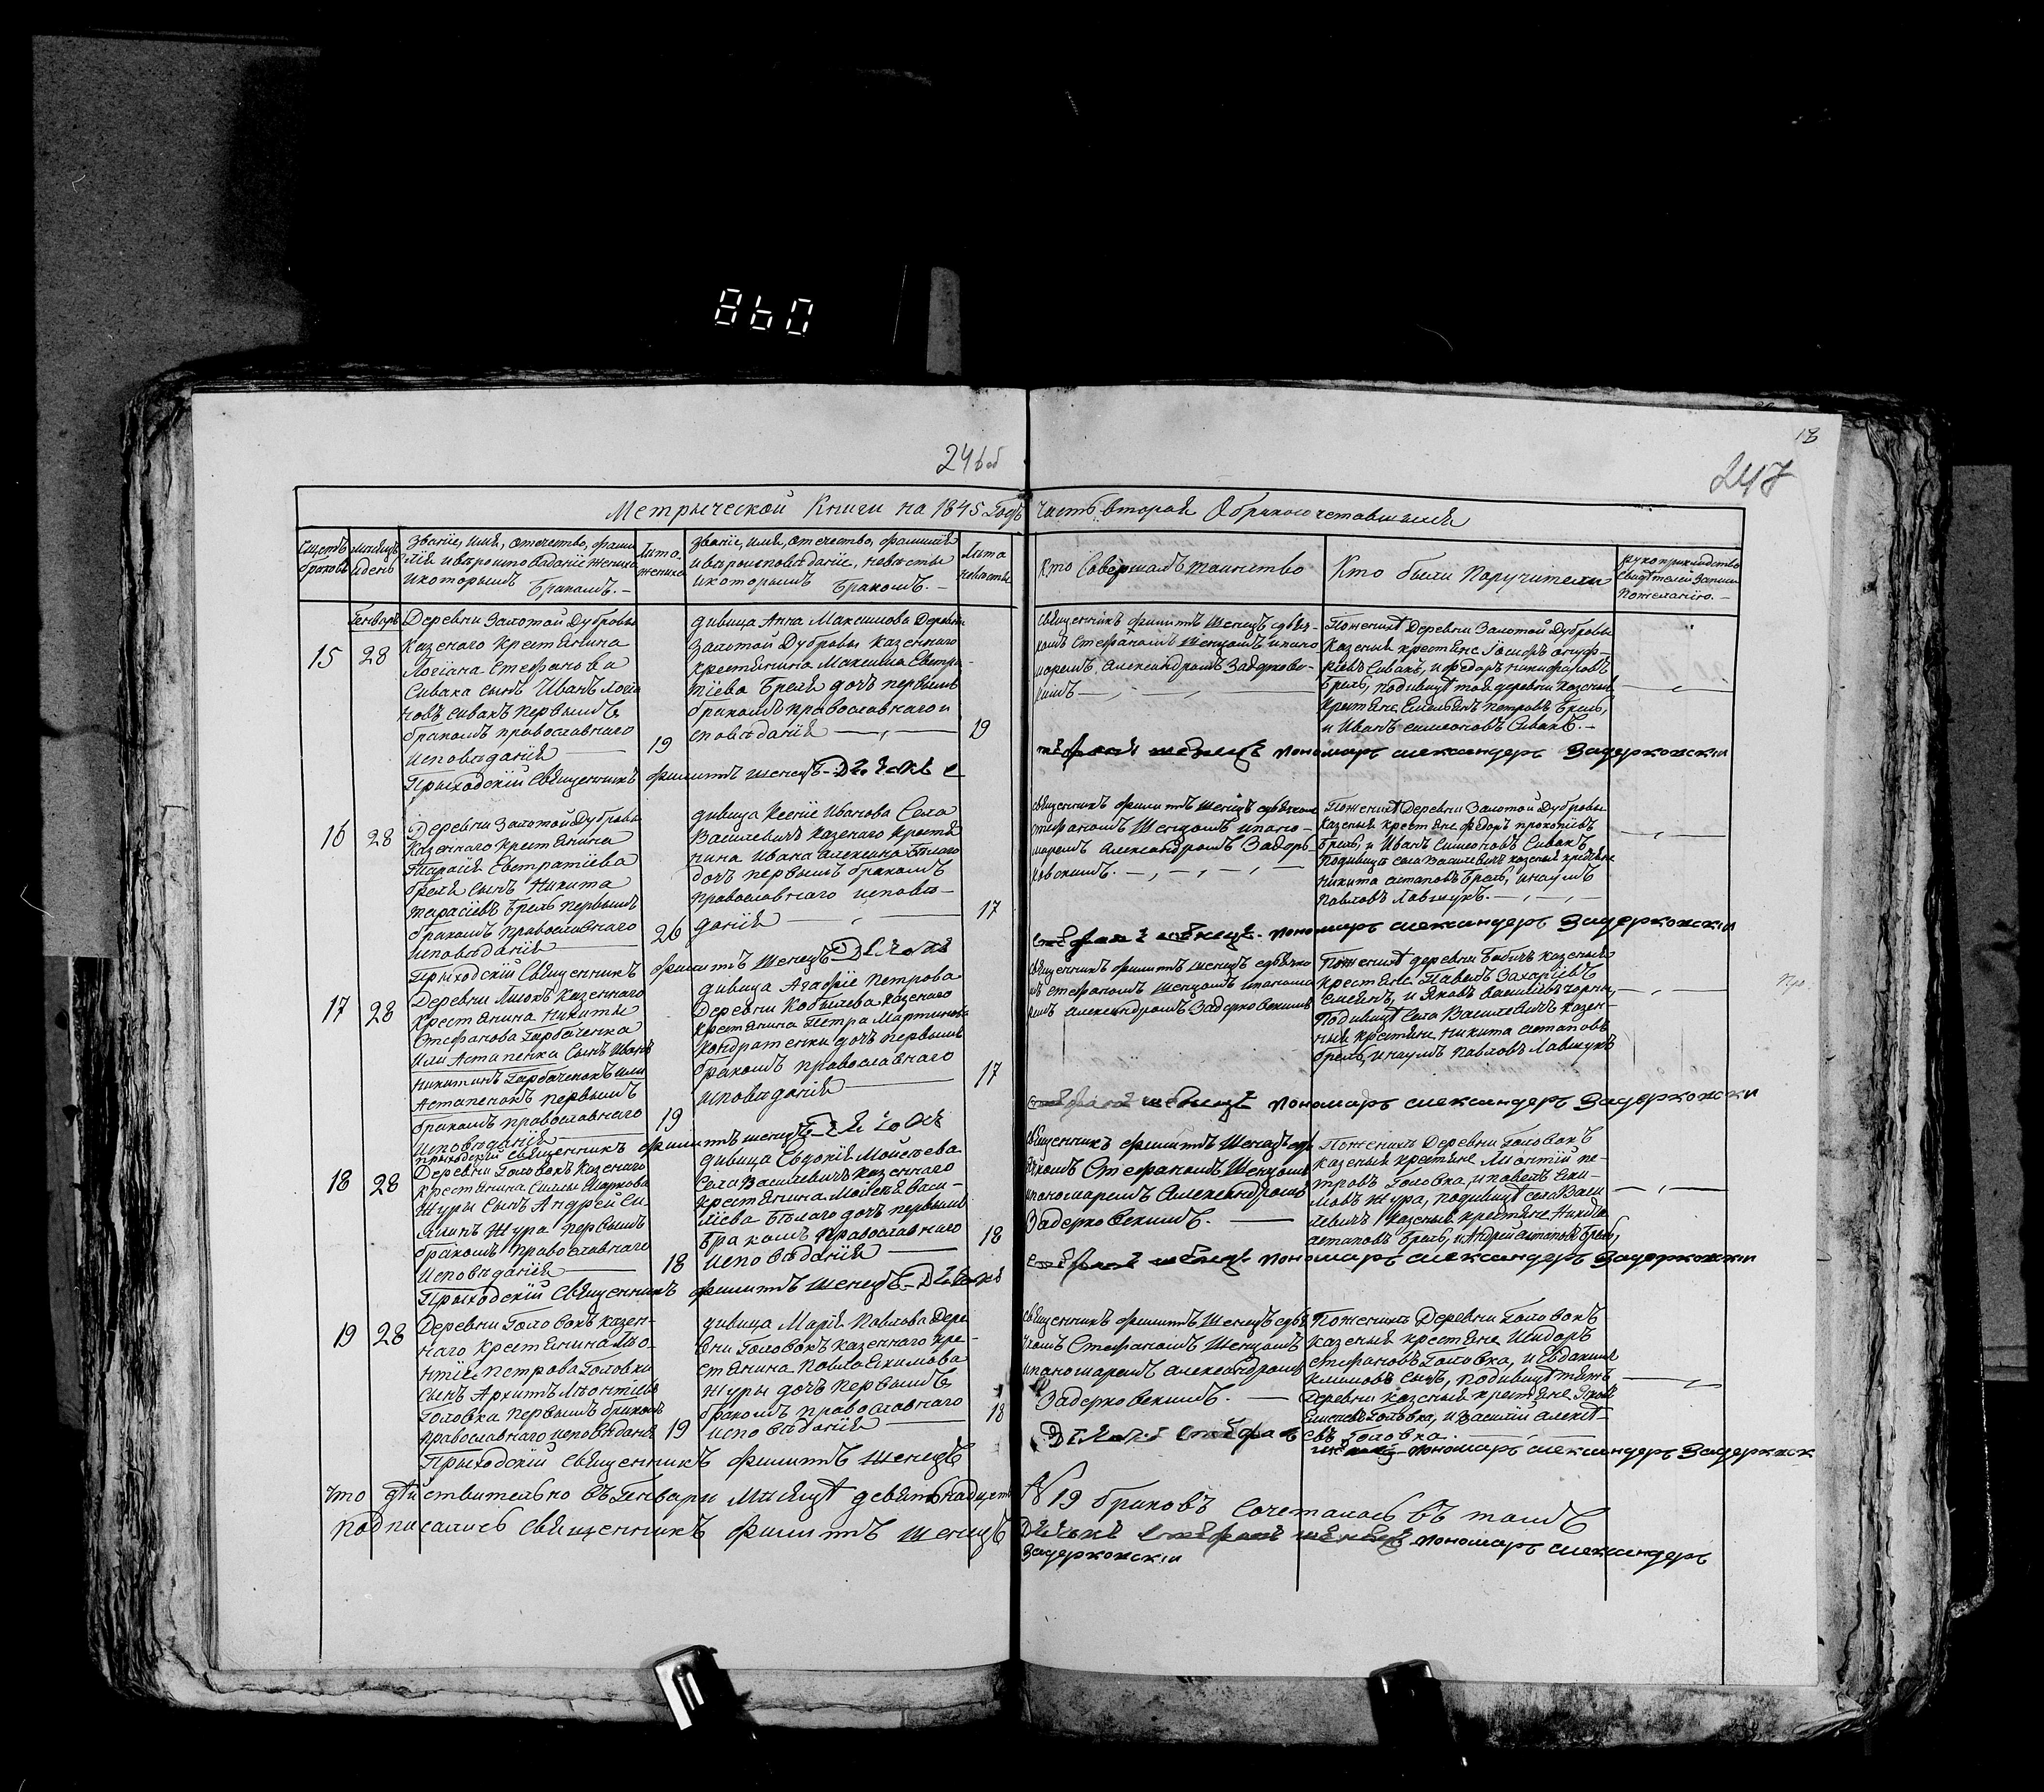 860
246 об
18
247
Метрыческой Книги на 1845 Годъ
Часть вторая О бракосочетавшихся
Счетъ браковъ
Мѣсяцъ и день
Званіе, имя, отечество, фами
лія и вѣроисповѣданіе жениха
и которымъ бракомъ. –
Лѣта жениха
Званіе, имя, отечество, фамилія
и вѣроисповѣданіе, невѣсты
и которымъ бракомъ. –
Лѣта невѣсты
Кто Совершалъ таинство
Кто были Поручители
Рукоприкладство
свидѣтелей записи
по желанію. –
Генварь
15
28
Деревни Залотой Дубровы
Казеного Крестянина
Логіана Стефанова
Сивака сынъ Иванъ Логіа
новъ Сивакъ первымъ
бракомъ православнаго
исповѣданія
19
дивица Анна Максимова Деревни
Залотой Дубровы казеннаго
крестянина Максима Евстра
тіева Бреля дочь первымъ
бракомъ православнаго и
сповѣданія
19
священникъ филиппъ Шенецъ з дѣяч–
комъ Стефаномъ Шенцомъ и пано
маремъ Александромъ Задеркове–
кимъ
По женихѣ Деревни Залотой Дубровы
Казеныя крестяне Іосифъ ануф–
ріевъ Сивакъ, и Федоръ Никифаровъ
Брель, по дивицѣ той деревни казеныя
крестяне Емельянъ Петровъ Брель,
и Иванъ Симоновъ Сивакъ. –
Прыходскій Священникъ филиппъ шенецъ Дячокъ
стефанъ шенецъ пономаръ александеръ Задерковскіи
16
28
Деревни Залотой Дубровы
Казеннаго Крестянина
Тарасія Евстратіева
бреля сынъ Никита
тарасіевъ Брель первымъ
бракомъ православнаго
исповѣданія
26
дивица Ксенія Иванова Села
Василевичъ казенаго крестя
нина Ивана Алексина Бѣлаго
дочь первымъ бракомъ
православнаго исповѣ–
данія
17
священникъ филиппъ Шенецъ з дѣячкомъ
стефаномъ Шенцомъ и пано–
маремъ Александромъ Задер
ковскимъ.
По женихѣ Деревни Залотой Дубровы
Казеныя крестяне Федоръ прокопіевъ
брель, и Иванъ Симоновъ Сивакъ,
по дивицѣ села Василевичъ казеныя крестяне
Никита астаповъ Брель, и наумъ
Павловъ Лавшукъ.
Прыходскій Священникъ филиппъ Шенецъ Дячокъ
стефанъ шенецъ. пономаръ александеръ Задерковскіи
17
28
Деревни Ліокъ Казеннаго
Крестянина Никиты
Стефанова Гарбаченка
или Астапенка Сынъ Иванъ
Никитинъ Гарбаченокъ или
Астапенокъ первымъ
бракомъ православнаго
исповѣданія
19
дивица Агафія Петрова
Деревни Кобылева Казенаго
крестянина Петра Мартинова
Кондратенки дочь первымъ
бракомъ православнаго
исповѣданія
17
священникъ филиппъ Шенецъ з дѣячко
мъ стефаномъ Шенцомъ и панома
ремъ Александромъ Задерковскимъ
По женихѣ деревни Бабичъ казеныя
крестяне Павелъ Захаріевъ
Смеянъ, и Яковъ василіевъ чорны
По дивицѣ Села Василевичъ казен–
ныя крестяне Никита астаповъ
брель, и наумъ Павловъ Лавшукъ
Прыходскій Священникъ филиппъ шенецъ Дячокъ
стефанъ шенецъ пономаръ александеръ Задерковски
18
28
Деревни Головокъ Казенаго
Крестянина Силы Маркова
Журы Сынъ Андрей Си–
линъ Жура первымъ
бракомъ православнаго
исповѣданія
18
дивица Евдокія Моисѣева
Села Василевичъ казеннаго
крестянина Мойсея Васи–
ліева Бѣлаго дочь первымъ
бракомъ православнаго
исповѣданія
18
священникъ филиппъ Шенецъ з дя
чкомъ Стефаномъ Шенцомъ
и паномаремъ Александромъ
Задерковскимъ.
По женихѣ Деревни Головокъ
казеныя крестяне Ліонтій пе–
тровъ Головка, и павелъ Еки–
мовъ Жура, по дивицѣ села Васи
левичъ казеныя крестяне Никита
астаповъ Брель, и Андрей астаповъ Брель,
Прыходскій Священникъ филиппъ Шенецъ Дячокъ
стефанъ шенецъ пономаръ александеръ Задерковски
19
28
Деревни Головокъ казен–
наго крестянина Ліо–
нтія Петрова Головки
Сынъ Архипъ Ліонтіевъ
Головка первымъ бракомъ
православнаго исповѣданія
19
дивица Марія Павлова Дере
вни Головокъ казеннаго кре–
стянина Павла Екимова
Журы дочь первымъ
бракомъ православнаго
исповѣданія
18
священникъ филиппъ Шенецъ з дѣя
чкомъ Стефаномъ Шенцомъ
и паномаремъ Александромъ
Задерковскимъ.
По женихѣ Деревни Головокъ
Казеныя крестяне Шидоръ
стефановъ Головка, и Евдакимъ
климовъ сынъ, по дивицѣ тѣхъ
Деревни казеныя крестяне Яковъ
Елисеевъ Головка, и Василій алексѣ–
евъ Головка.
Прыходскій Священникъ филиппъ Шенецъ
Дячокъ стефанъ шенецъ пономаръ александеръ Задерковск
Что дѣйствительно въ Генвари Мѣсяцѣ девятьнадцеть
№ 19 браковъ Сочеталось въ томъ
подписались Священникъ филиппъ Шенецъ
Дячокъ стефанъ шенецъ пономаръ александеръ
Задерковскіи